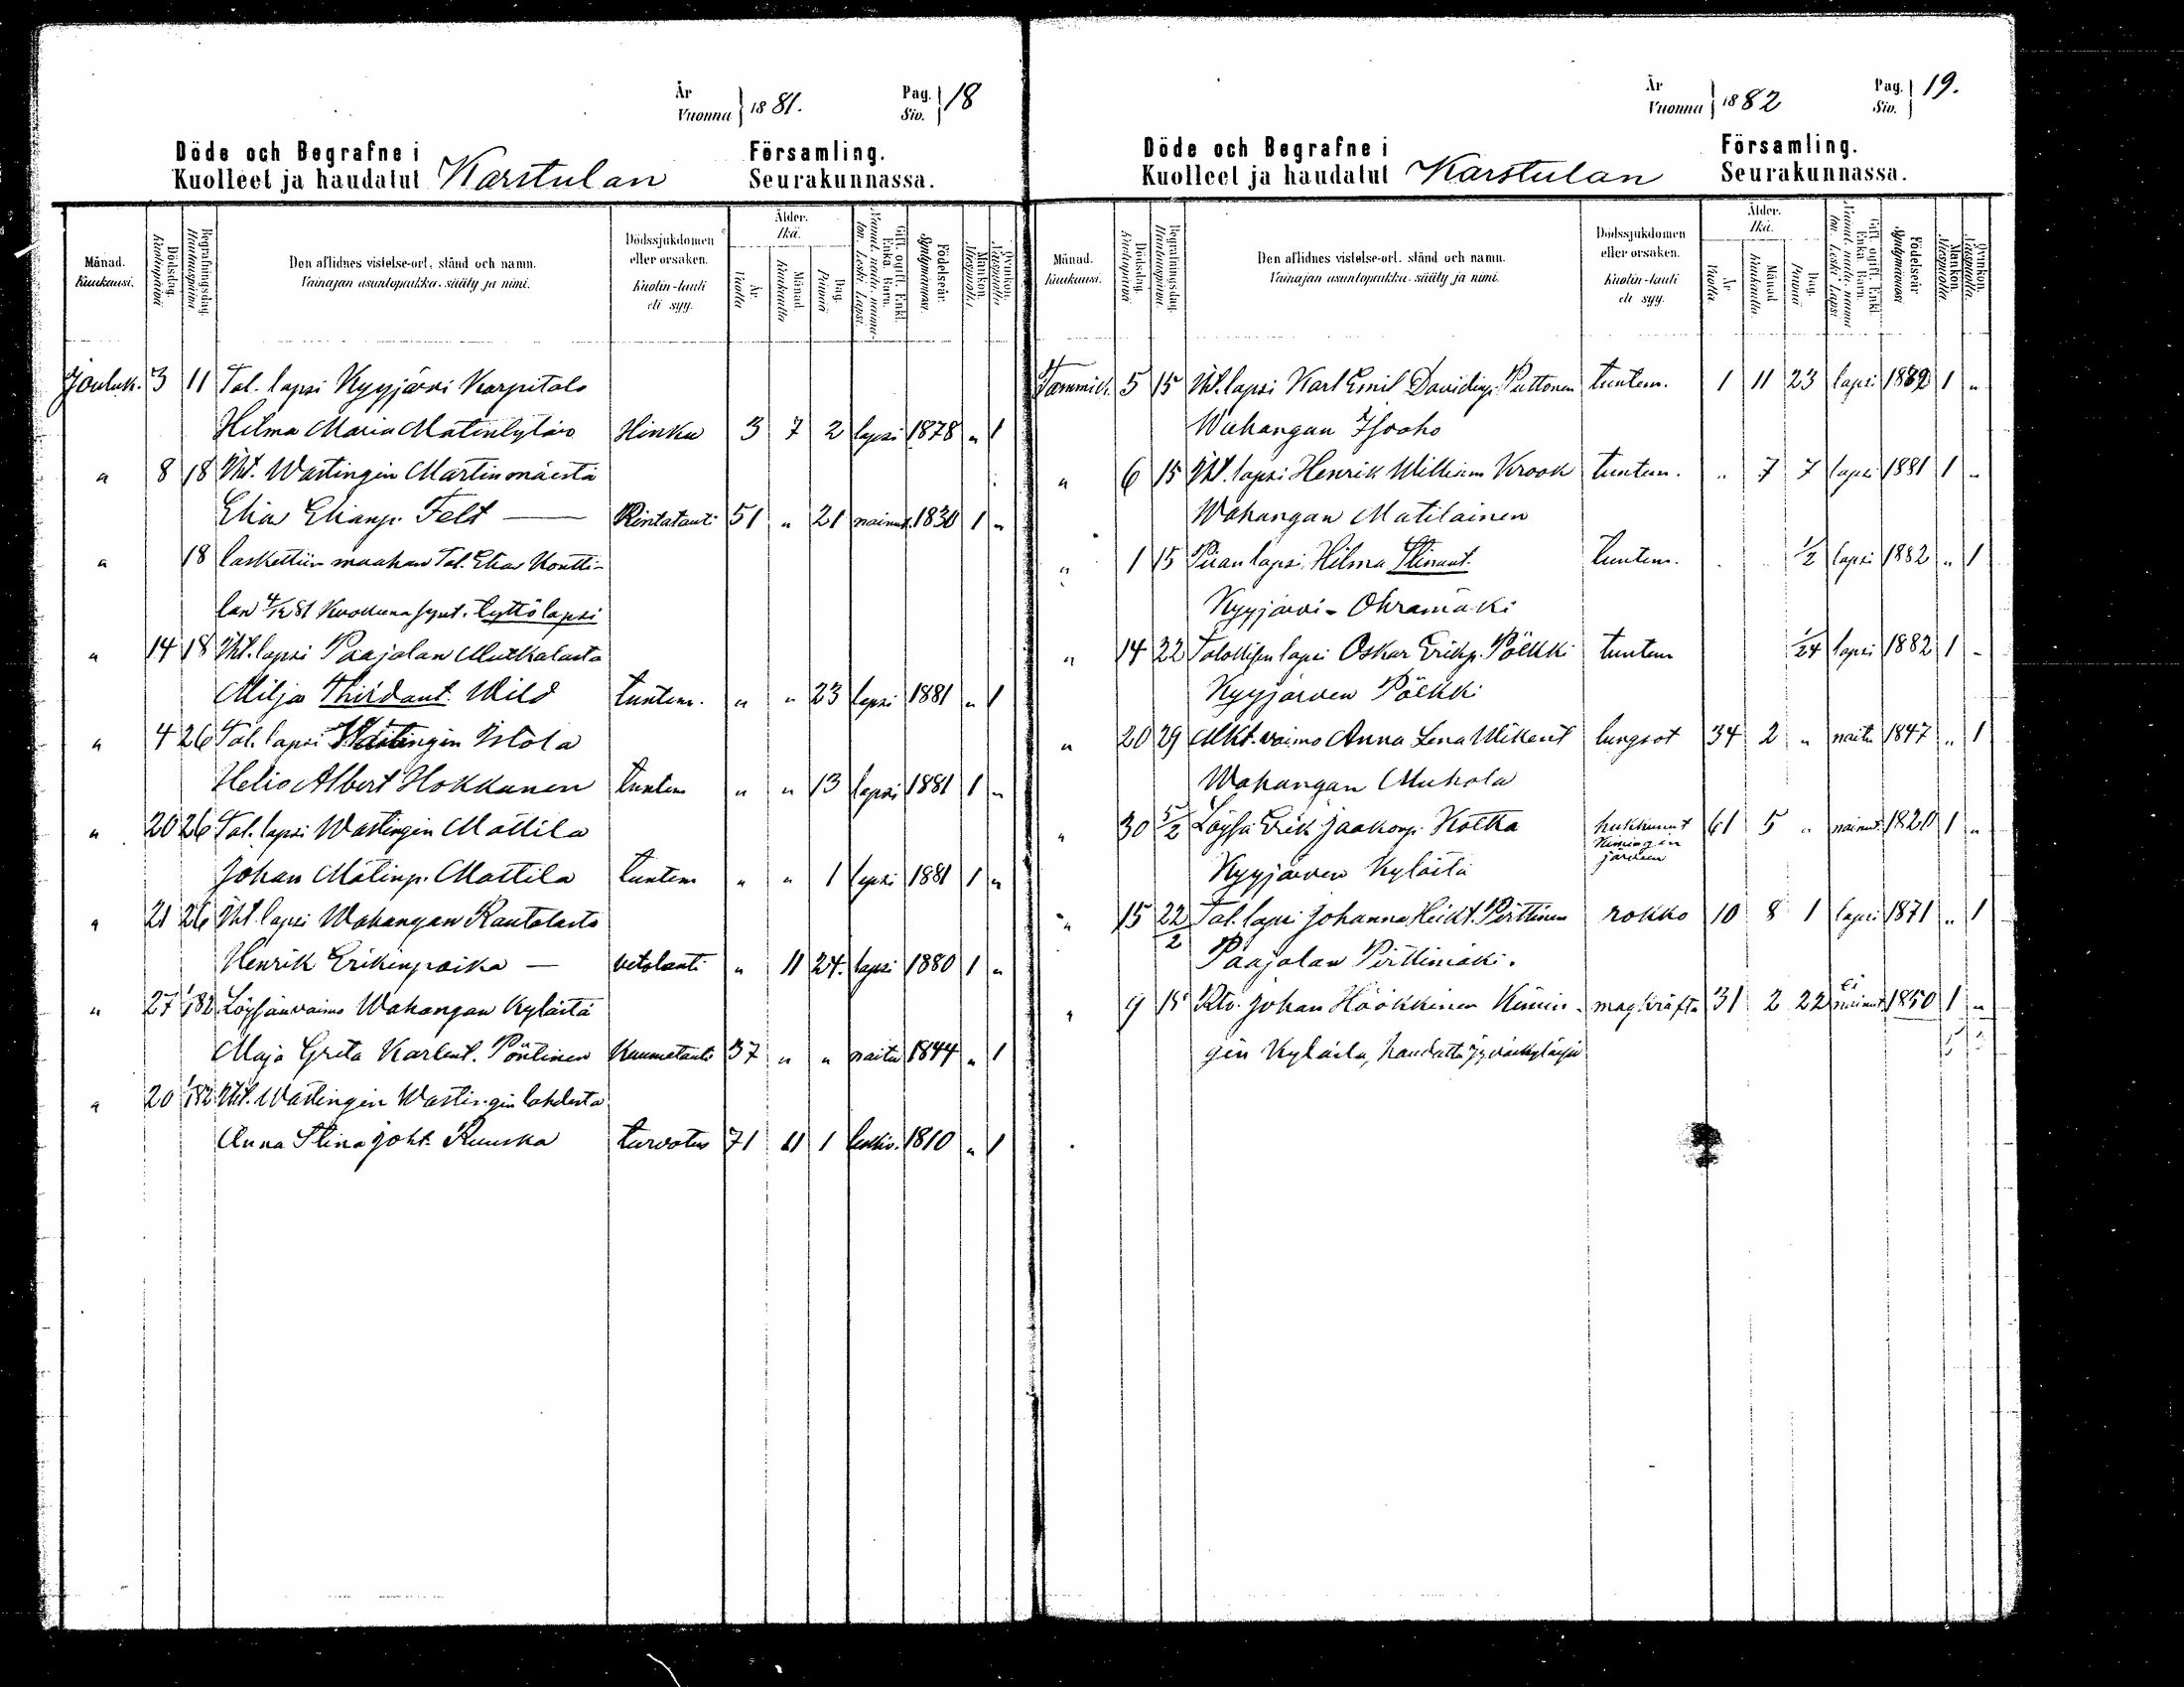 År
Vuonna } 1881.
Pag.
Siv. } 18
Döde och Begrafne i Församling.
Kuolleet ja haudatut Karstulan Seurakunnassa.
Månad. Kuukausi.
Dödsdag. Kuolinpäivä.
Begrafningsdag. Hautauspäivä.
Den aflidnes vistelse-ort, stånd och namn.
Vainajan asuntopaikka, sääty ja nimi.
Dödssjukdomen eller orsaken.
Kuolin-tauti eli syy.
Ålder. Ikä.
År. Vuotta
Månad. Kuukautta
Dag. Päivää
Gift, ogift. Enkl. Enka. Barn.
Födelseår. Syntymävuosi.
Mankön. Miespuolia.
Qvinkön. Vaispuolia.
Jouluk. 3 11 Tal. lapsi Kyyjärvi Karpitalo
Hilma Maria Matintytär Hinku 3 7 2 lapsi 1878 " 1
" 8 18 Itl. Wastingin Martinmäestä
Elias Elianp. Felt — Rintatauti 51 " 21 nainut. 1830 1 "
" 18 laskettiin maahan Tal. Elias Kontti-
lan 4/12 81 Kuolleena synt. tyttölapsi
" 14 18 Itl. lapsi Paajalan Mutkalasta
Milja Thirdant. Wild tuntem. " " 23 lapsi 1881 " 1
" 4 26 Tal. lapsi Wastingin
Helio Albert Hokkanen tuntem " " 13 lapsi 1881 1 "
" 20 26 Tal. lapsi Wastingin Mattila
Johan Matinp. Mattila tuntem " " 1 lapsi 1881 1 "
" 21 26 Itl. lapsi Wahangan Rautalasto
Henrik Erikinpoika — vetotauti " 11 24. lapsi 1880 1 "
" 27 1/1 82 Löysän vaimo Wahangan kylästä
Maja Greta Karlent. Pöntinen Kuumetauti 37 " " naitu 1844 " 1
" 20 1/1 82 Itl. Wastingin Wastingin lahdesta
Anna Stina Joht. Ruuska turvotus 71 11 1 leskiv. 1810 " 1
År
Vuonna } 1882
Pag.
Siv. } 19.
Döde och Begrafne i Församling.
Kuolleet ja haudatut Karstulan Seurakunnassa.
Månad. Kuukausi.
Dödsdag. Kuolinpäivä
Begrafningsdag. Hautauspäivä.
Den aflidnes vistelse-ort, stånd och namn.
Vainajan asuntopaikka, sääty ja nimi.
Dödssjukdomen eller orsaken.
Kuolin-tauti eli syy.
Ålder. Ikä.
År. Vuotta.
Månad. Kuukautta.
Dag. Päivää
Gift, ogift. Enkl. Enka. Barn.
Födelseår. Syntymävuosi
Mankön. Miespuolia.
Qvinkön. Vaispuolia.
Tammik. 5 15 Itl. lapsi Karl Emil Davidinp. Puttonen tuntem. 1 11 23 lapsi 1 "
Wahangan Isoaho
" 6 15 Itl. lapsi Henrik William Krook tuntem. " 7 7 lapsi 1881 1 "
Wahangan Matilainen
" 1 15 Piian lapsi Hilma Stinant. tuntem. 1/2 lapsi 1882 " 1
Kyyjärvi - Ohramäki
" 14 22 Talollisen lapsi Oskar Erikp. Pölkki tuntem 1/24 lapsi 1882 1 "
Kyyjärven Pölkki
" 20 29 Mkt. vaimo Anna Lena Mikent lungsot 34 2 " naitu 1847 " 1
Wahangan Muhola
" 30 5/2 Löysä Erik Jaakonp. Kotka hukkunut 61 5 " nainut. 1820 1 "
Kiminginjärveen
Kyyjärven Kylästä
" 15 22/2 Tal. lapsi Johanna Heikt. Pirttinen rokko 10 8 1 lapsi 1871 " 1
Paajalan Pirttimäki.
" 9 15 Johan Höökkinen Kimin- magkräfta 31 2 22 ei nainut 1850 1 "
gin Kylästä, haudattu Jyväskylässä